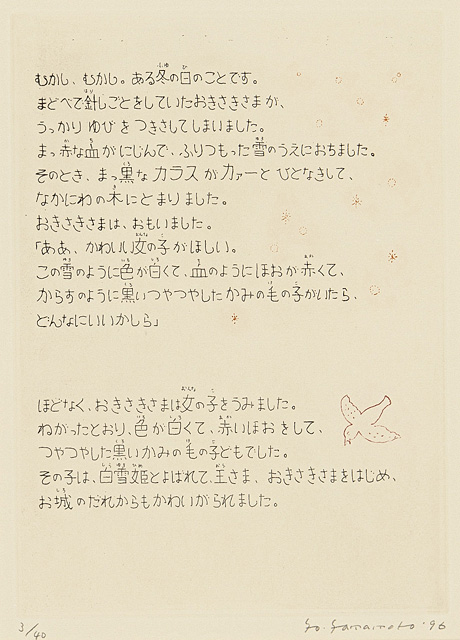 むかし、むかし。ある冬の日のことです。
まどべで針しごとをしていたおきさきさまが、
うっかり ゆび を つきさしてしまいました。
まっ赤な血がにじんで、ふりつもった雪のうえにおちました。
そのとき、まっ黒な カラスが カァーと ひとなきして、
なかにわの木にとまりました。
おきさきさまは、おもいました。
「ああ、かわいい女の子がほしい。
この雪のように色が白くて、血のようにほおが赤くて、
からすのように黒いつやつやしたかみの毛の子がいたら、
どんなにいいかしら」
ほどなく、おきさきさまは女の子をうみました。
ねがったとおり、色が白くて、赤いほおをして、
つやつやした黒いかみの毛の子どもでした。
その子は、白雪姫とよばれて、王さま、おきさきさまをはじめ、
お城のだれからもかわいがられました。
3/40
Yo. Yamamoto '96